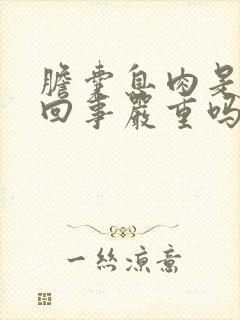 膽囊息肉是
回事嚴重嗎
一絲涼意